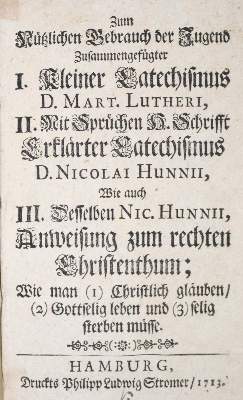 Zum
Nützlichen Gebrauch der Jugend
Zusammengefügter
I. Kleiner Catechismus
D. MART. LUTHERI,
II. Mit Sprüchen H. Schrifft
Erklärter Catechismus
D. NICOLAI HUNNII,
Wie auch
III. Desselben NIC. HUNNII,
Anweisung zum rechten
Christenthum;
Wie man (1) Christlich gläuben/
(2) Gottselig leben und (3) selig
sterben müsse.
HAMBURG,
Druckts Philipp Ludwig Stromer/ 1713.